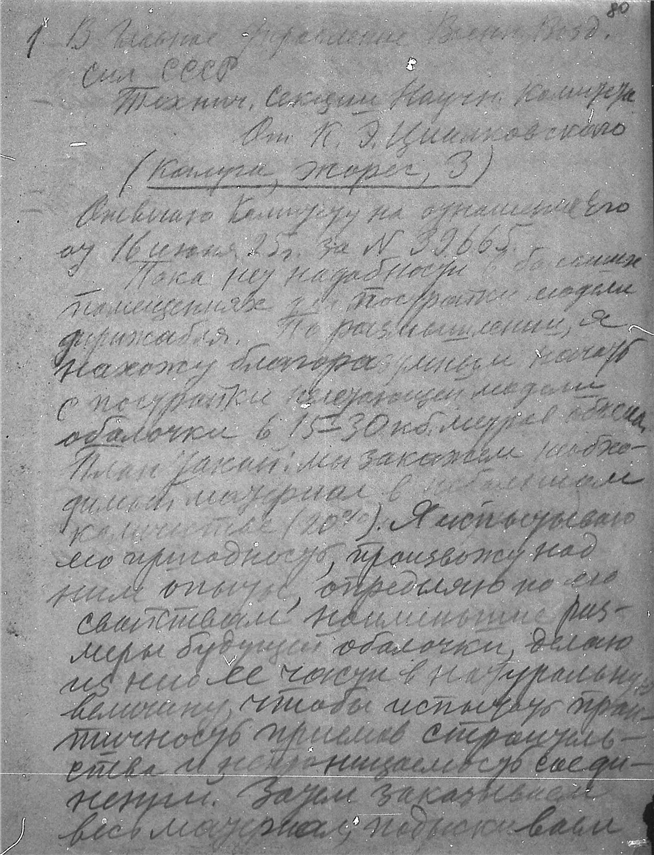 80
1 В Главное Управление Военн. Возд.
Сил СССР
Технич. Секции Научн. Комитета
От К. Э. Циолковского
(Калуга, Жорес, 3)
Отвечаю Комитету на отношение Его
от 16 июня 25г. за N 39665.
Пока нет надобности в больших
помещениях для постройки модели
дирижабля. По размышлении, я
нахожу благоразумным начать
с постройки модели
оболочки в 15–30 кб. метров
План такой: мы закажем необхо-
димый материал в небольшом
количестве (20%). Я испытываю
его пригодность, произвожу над
ним опыты, определяю по его
свойствам наименьшие раз-
меры будущей оболочки, делаю
из них ее части в натуральную
величину, чтобы испытать прак-
тичность приемов строитель-
ства и непроницаемость соеди-
нений. Затем заказываем
весь материал, подыскиваем